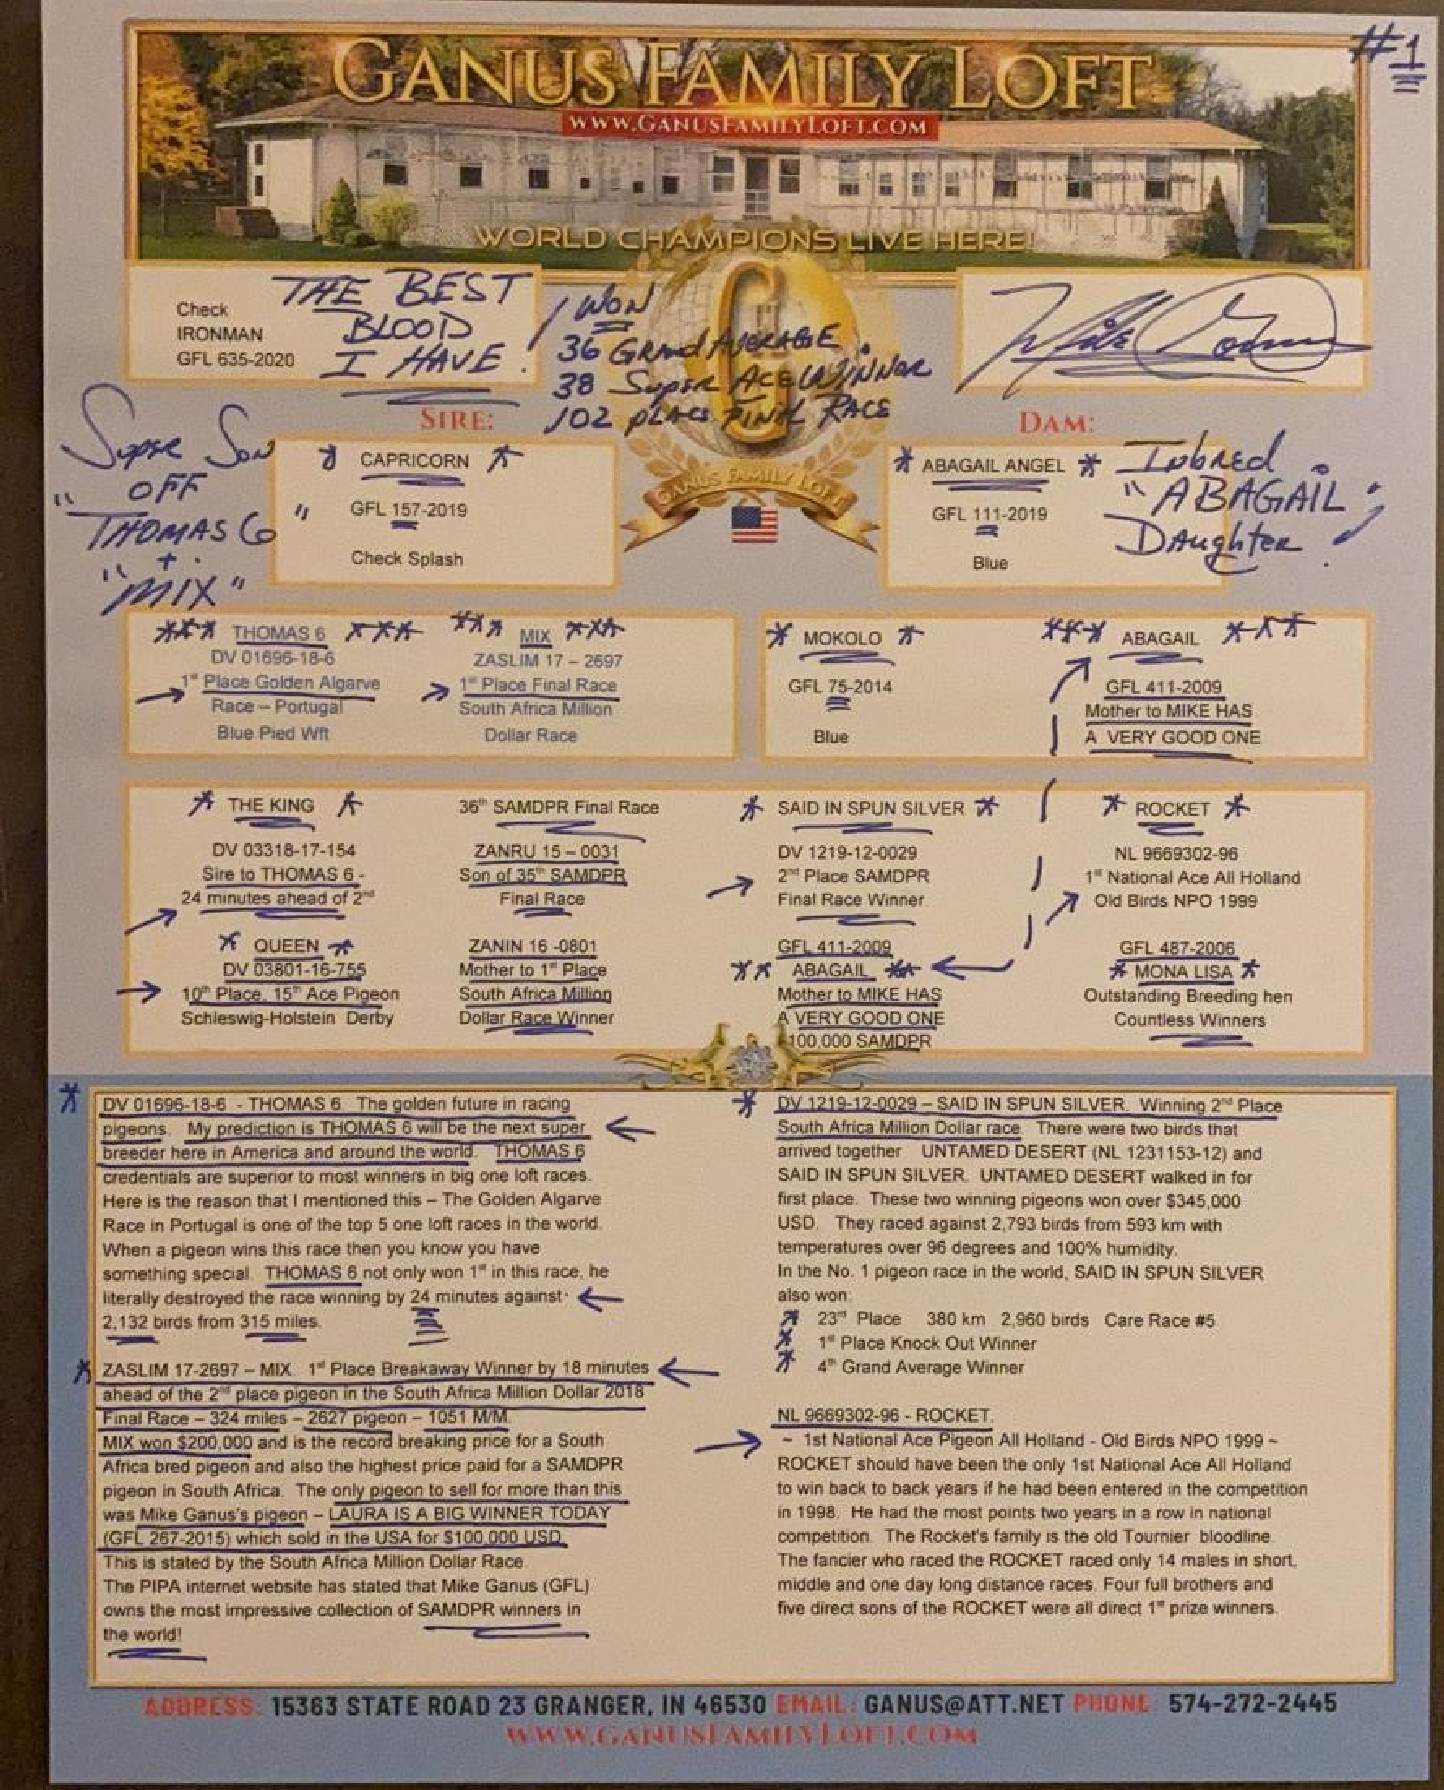 #1
GANUS FAMILY LOFT
WWW.GANUSFAMILYLOFT.COM
WORLD CHAMPIONS LIVE HERE!
Check
IRONMAN
GFL 635-2020
THE BEST
BLOOD
I HAVE!
WON
36 Grand AVERAGE
38 Super Ace WINNER
102 PLACE FINAL RACE
SIRE:
DAM:
Super Son
OFF
"THOMAS 6"
+
"MIX"
* CAPRICORN *
GFL 157-2019
Check Splash
GANUS FAMILY LOFT
* ABAGAIL ANGEL *
GFL 111-2019
Blue
Inbred
"ABAGAIL"
Daughter!
*** THOMAS 6 ***
DV 01696-18-6
1st Place Golden Algarve
Race – Portugal
Blue Pied Wft
*** MIX ***
ZASLIM 17 – 2697
1st Place Final Race
South Africa Million
Dollar Race
* MOKOLO *
GFL 75-2014
Blue
*** ABAGAIL ***
GFL 411-2009
Mother to MIKE HAS
A VERY GOOD ONE
* THE KING *
DV 03318-17-154
Sire to THOMAS 6 -
24 minutes ahead of 2nd
* QUEEN *
DV 03801-16-755
10th Place, 15th Ace Pigeon
Schleswig-Holstein Derby
36th SAMDPR Final Race
ZANRU 15 – 0031
Son of 35th SAMDPR
Final Race
ZANIN 16 -0801
Mother to 1st Place
South Africa Million
Dollar Race Winner
* SAID IN SPUN SILVER *
DV 1219-12-0029
2nd Place SAMDPR
Final Race Winner
GFL 411-2009
** ABAGAIL **
Mother to MIKE HAS
A VERY GOOD ONE
100,000 SAMDPR
* ROCKET *
NL 9669302-96
1st National Ace All Holland
Old Birds NPO 1999
GFL 487-2006
* MONA LISA *
Outstanding Breeding hen
Countless Winners
* DV 01696-18-6 - THOMAS 6 The golden future in racing
pigeons. My prediction is THOMAS 6 will be the next super
breeder here in America and around the world. THOMAS 6
credentials are superior to most winners in big one loft races.
Here is the reason that I mentioned this – The Golden Algarve
Race in Portugal is one of the top 5 one loft races in the world.
When a pigeon wins this race then you know you have
something special. THOMAS 6 not only won 1st in this race, he
literally destroyed the race winning by 24 minutes against
2,132 birds from 315 miles.
* ZASLIM 17-2697 – MIX. 1st Place Breakaway Winner by 18 minutes
ahead of the 2nd place pigeon in the South Africa Million Dollar 2018
Final Race – 324 miles – 2627 pigeon – 1051 M/M.
MIX won $200,000 and is the record breaking price for a South
Africa bred pigeon and also the highest price paid for a SAMDPR
pigeon in South Africa. The only pigeon to sell for more than this
was Mike Ganus's pigeon – LAURA IS A BIG WINNER TODAY
(GFL 267-2015) which sold in the USA for $100,000 USD.
This is stated by the South Africa Million Dollar Race.
The PIPA internet website has stated that Mike Ganus (GFL)
owns the most impressive collection of SAMDPR winners in
the world!
* DV 1219-12-0029 – SAID IN SPUN SILVER. Winning 2nd Place
South Africa Million Dollar race. There were two birds that
arrived together UNTAMED DESERT (NL 1231153-12) and
SAID IN SPUN SILVER. UNTAMED DESERT walked in for
first place. These two winning pigeons won over $345,000
USD. They raced against 2,793 birds from 593 km with
temperatures over 96 degrees and 100% humidity.
In the No. 1 pigeon race in the world, SAID IN SPUN SILVER
also won:
* 23rd Place 380 km 2,960 birds Care Race #5
* 1st Place Knock Out Winner
* 4th Grand Average Winner
NL 9669302-96 - ROCKET.
~ 1st National Ace Pigeon All Holland - Old Birds NPO 1999 ~
ROCKET should have been the only 1st National Ace All Holland
to win back to back years if he had been entered in the competition
in 1998. He had the most points two years in a row in national
competition. The Rocket's family is the old Tournier bloodline.
The fancier who raced the ROCKET raced only 14 males in short,
middle and one day long distance races. Four full brothers and
five direct sons of the ROCKET were all direct 1st prize winners.
ADDRESS: 15363 STATE ROAD 23 GRANGER, IN 46530 EMAIL: GANUS@ATT.NET PHONE: 574-272-2445
WWW.GANUSFAMILYLOFT.COM